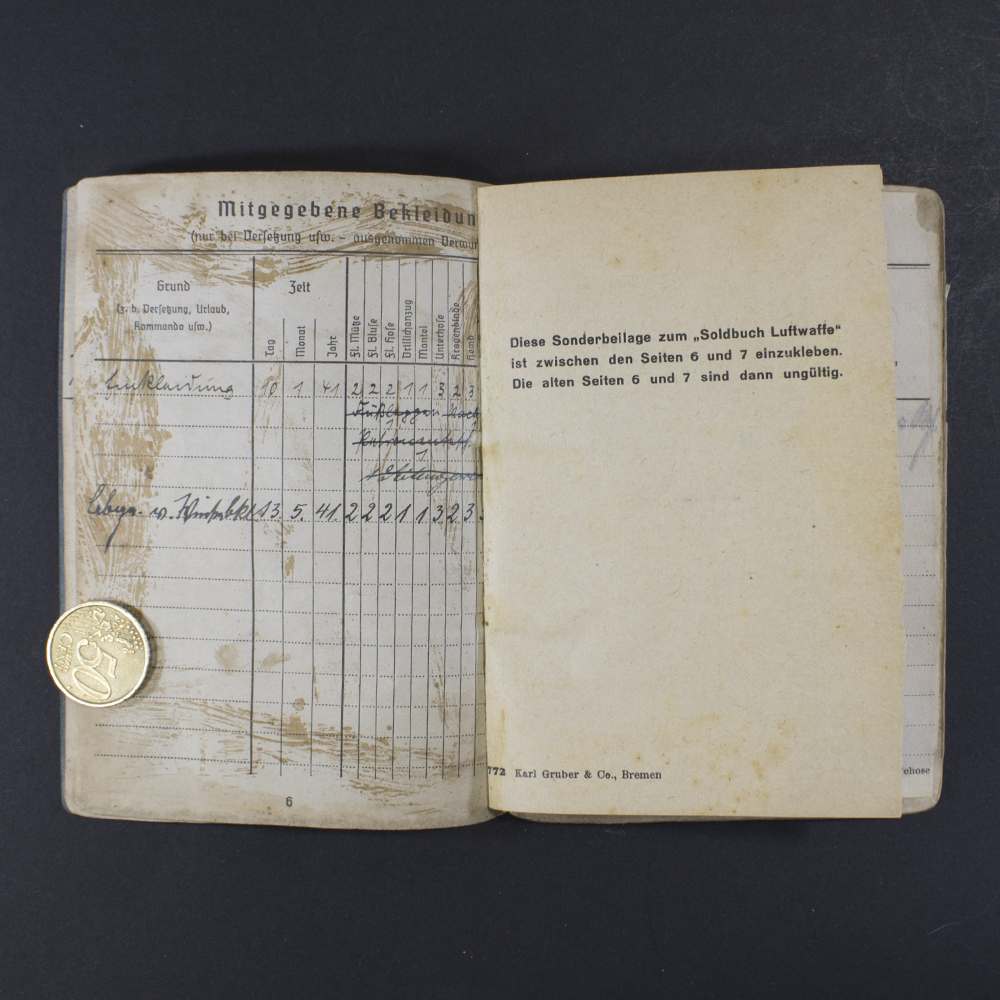 Mitgegebene Bekleidun
(nur bei Versetzung usw. – ausgenommen Verwun
Grund
(z. B. Versetzung, Urlaub,
Kommando usw.)
Zeit
Tag
Monat
Jahr
Fl. Mütze
Fl. Bluse
Fl. Hose
Drillichanzug
Mantel
Unterhose
Kragenbinde
Hemd
Einkleidung 10 1 41 2 2 2 1 1 3 2 3
Fußlappen
13. 5. 41. 2 2 2 1 1 3 2 3
6
Diese Sonderbeilage zum „Soldbuch Luftwaffe“
ist zwischen den Seiten 6 und 7 einzukleben.
Die alten Seiten 6 und 7 sind dann ungültig.
772 Karl Gruber & Co., Bremen
ehose
50
CENT